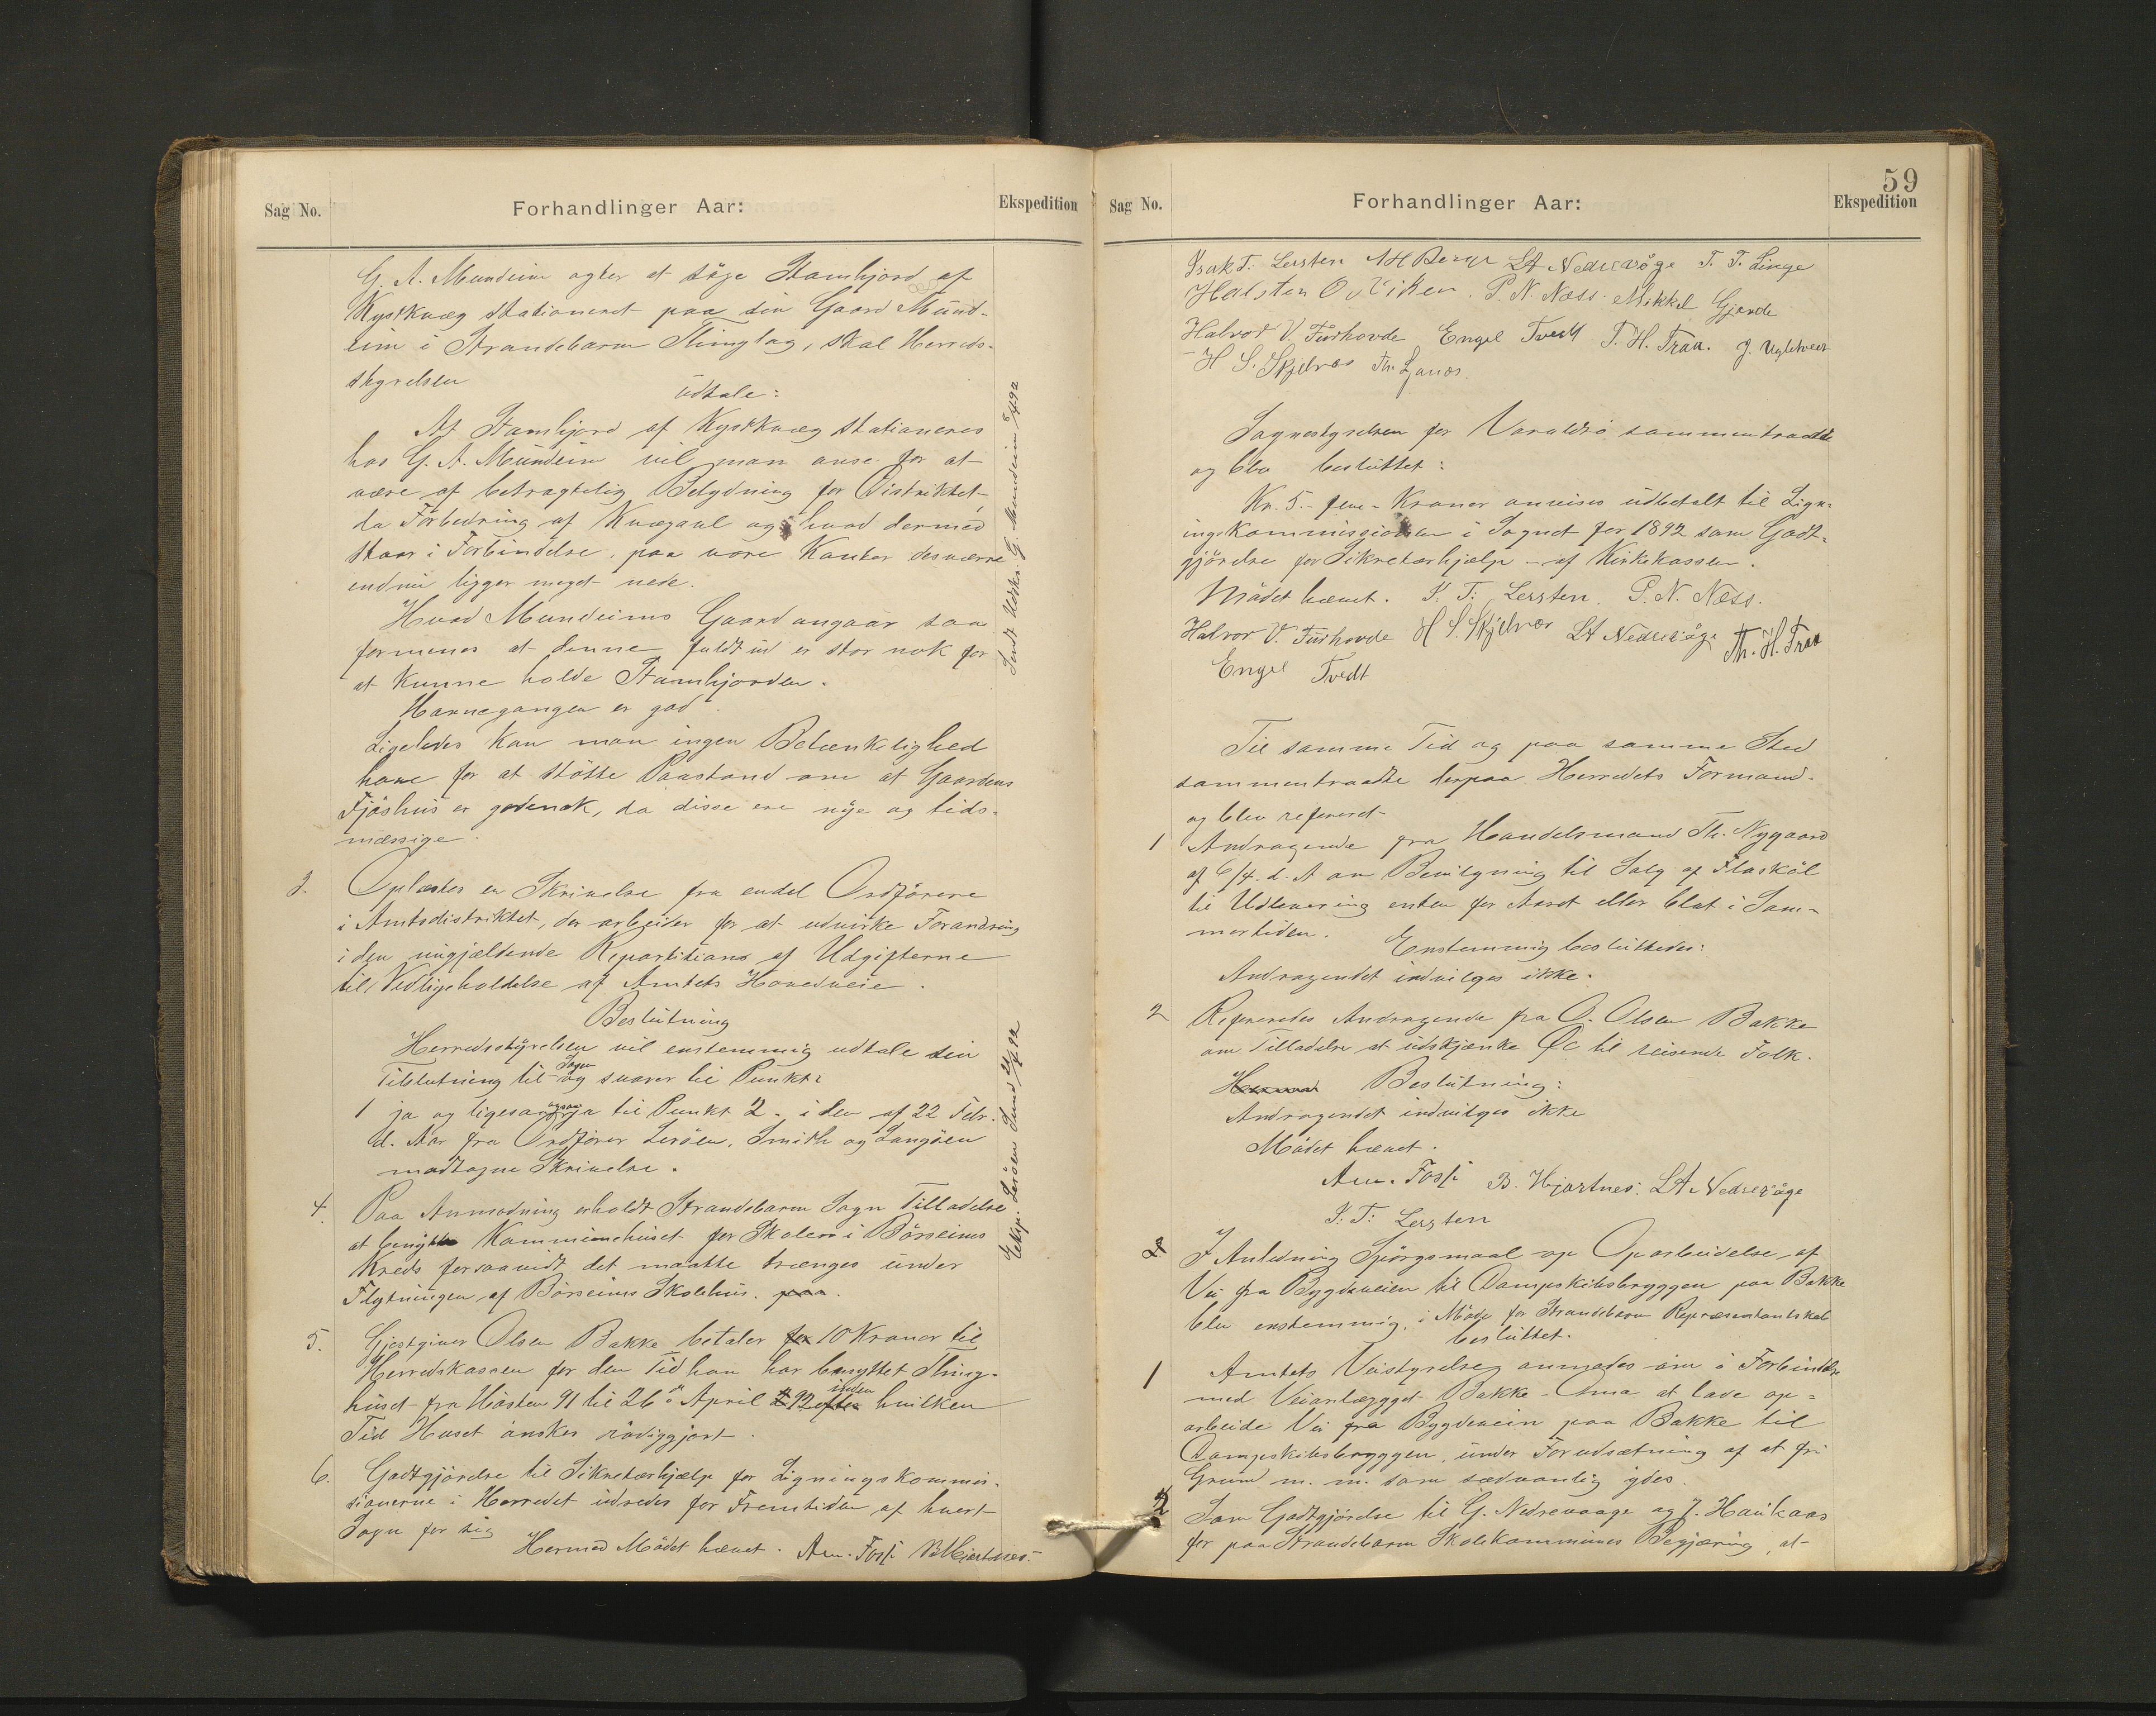 Sag No.
Forhandlinger Aar:
Ekspedition
G. A. Mundeim agter at søge Stamhjord af
Kystkvæg stationeret paa sin Gaard Mund-
eim i Strandebarm Thinglag, skal Herreds-
styrelsen
udtale:
At Stamhjord af Kystkvæg stationeres
hos G. A. Mundeim vil man anse for at
være af betragtelig Betydning for Distriktet
da Forbedring af Kvægavl og hvad dermed
staar i Forbindelse, paa vore Kanter desværre
endnu ligger meget nede.
Hvad Mundeims Gaard angaar saa
formenes at denne fuldt ud er stor nok for
at kunne holde Stamhjorden.
Havnegangen er god.
Ligeledes kan man ingen Betænkelighed
have for at støtte Paastand om at Gaardens
Fjøshus er godenok, da disse ere nye og tids-
mæssige.
Sendt Udskr. G. Mundeim
3. Oplæstes en Skrivelse fra endel Ordførere
i Amtsdistriktet, der arbeider for at udvirke Forandring
i den nugjældende Repartitions af Udgifterne
til Vedligeholdelse af Amtets Hovedveie.
Beslutning
Herredsstyrelsen vil enstemmig udtale sin
Tilslutning til Sagen og svarer til Punkt:
1 ja og ligesaa ogsaa ja til Punkt 2. i den af 22 Febr.
d. Aar fra Ordfører Lerøen, Smith og Langøen
modtagne Skrivelse.
Eksp. Lerøen Sund
4. Paa Anmodning erholdt Strandebarm Sogn Tilladelse
at benytte Kommunehuset for Skolen i Børseims
Kreds forsaavidt det maatte trænges under
Flytningen af Børseims Skolehus. paa.
5. Gjestgiver Olsen Bakke betaler for 10 Kroner til
Herredskassen for den Tid han har benyttet Thing-
huset fra Høsten 91 til 26 April 92 efter inden hvilken
Tid Huset ønskes rødiggjort.
6. Godtgjørelse til Sikretærhjælp for Ligningskommis-
sionerne i Herredet udredes for Fremtiden af hvert
Sogn for sig
Hermed Mødet hævet. Am. Foss. B Hjartnes.
59
Sag No.
Forhandlinger Aar:
Ekspedition
Isak T. Lersten A H Berge LA Nedrevåge T. T. Linge
Halsten O Viken. P. N. Næss. Mikkel Gjerde
Halvor V. Tushovde Engel Tvedt T. H. Traa. J. Ugletveit
H S. Skjelnæs Th. Ljanes.
Sognestyrelsen for Varaldsø sammentraadte
og blev besluttet:
Kr. 5.- fem - Kroner anvises udbetalt til Lign-
ingskommissionen i Sognet for 1892 som Godt-
gjørelse for Sikretærhjælp - af Kirkekassen.
Mødet hævet. I. T. Lersten. P. N. Næss.
Halvor V. Tushovde H S. Skjelnæs LA Nedrevåge Th. H. Traa
Engel Tvedt
Til samme Tid og paa samme Sted
sammentraadte derpaa Herredets Formænd.
og blev refereret
1 Andragende fra Handelsmand Th. Nygaard
af 6/4. d. A om Bevilgning til Salg af Flaskøl
til Udlevering enten for Aaret eller blot i Som-
mertiden.
Enstemmig besluttedes:
Andragendet indvilges ikke.
2 Refereredes Andragende fra O. Olsen Bakke
om Tilladelse at udskjænke Øl til reisende Folk.
Beslutning:
Andragendet indvilges ikke
Mødet hævet.
Am. Foss. B. Hjartnes. LA Nedrevåge
I. T. Lersten
I Anledning Spørgsmaal op Oparbeidelse af
Vei fra Bygdeveien til Dampskibsbryggen paa Bakke
blev enstemmig, i Møde for Strandebarm Repræsentantskab
besluttet.
1 Amtets Veistyrelse anmodes om i Forbindelse
med Veianlægget Bakke - Oma at lave op-
arbeide Vei fra Bygdevein paa Bakke til
Dampskibsbryggen, under Forudsætning af at fri
Grund m. m. som sædvanlig ydes.
2 Som Godtgjørelse til G. Nedrevaage og J. Haukaas
for paa Strandebarm Skolekommunes Begjæring, at